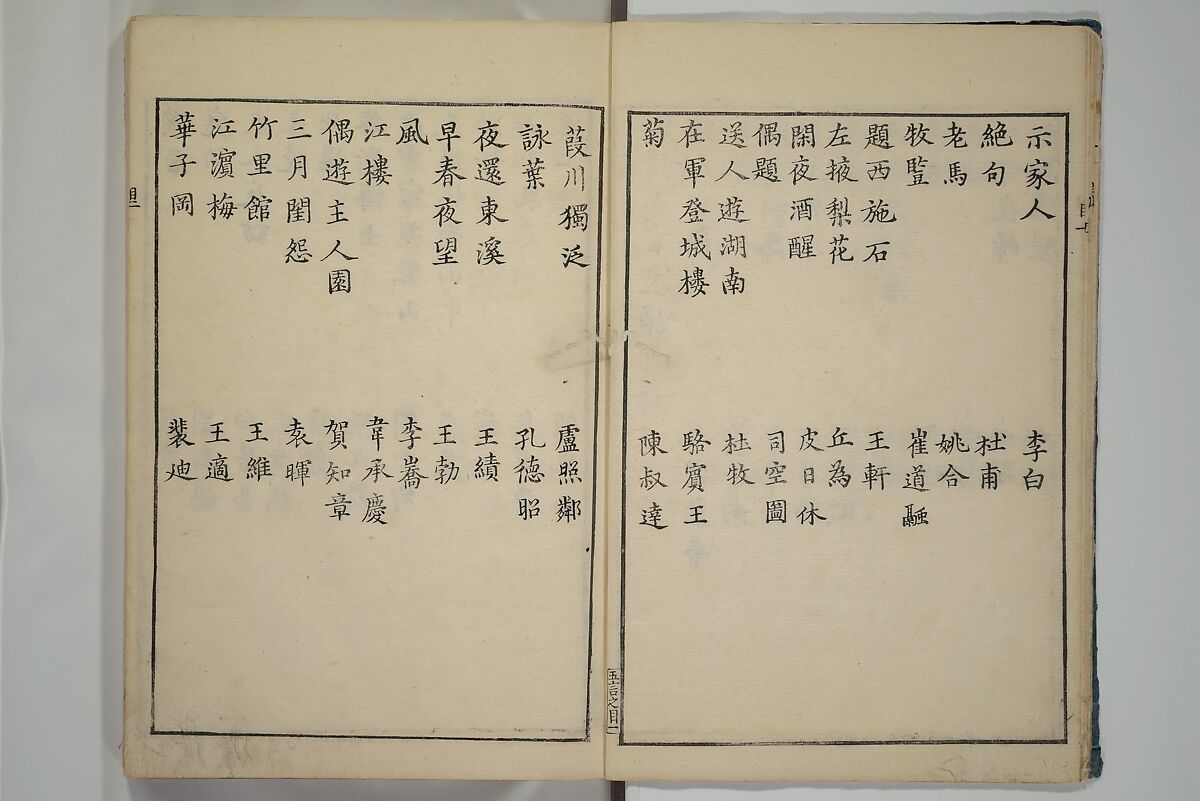 示家人 李白
絶句 杜甫
老馬 姚合
牧豎 崔道融
題西施石 王軒
左掖梨花 丘為
閑夜酒醒 皮日休
偶題 司空圖
送人遊湖南 杜牧
在軍登城樓 駱賓王
菊 陳叔達
五言之目一
葭川獨泛 盧照鄰
詠葉 孔德昭
夜還東溪 王績
早春夜望 王勃
風 李嶠
江樓 韋承慶
偶遊主人園 賀知章
三月閨怨 袁暉
竹里館 王維
江濵梅 王適
華子岡 裴迪